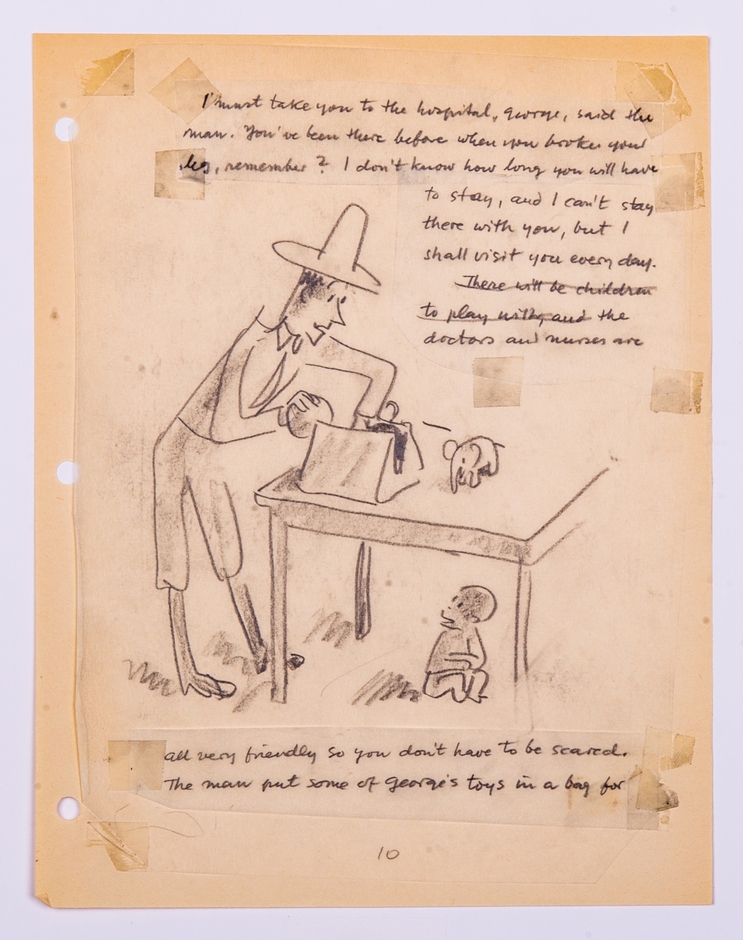 I must take you to the hospital, george, said the
man. You've been there before when you broke your
leg, remember? I don't know how long you will have
to stay, and I can't stay
there with you, but I
shall visit you every day.
There will be children
to play with, and the
doctors and nurses are
all very friendly so you don't have to be scared.
The man put some of george's toys in a bag for
10